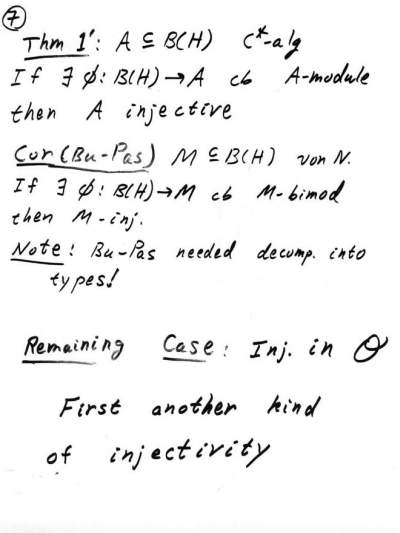 7
Thm 1': A ⊆ B(H) C*-alg
If ∃ φ: B(H) → A cb A-module
then A injective
Cor (Bu-Pas) M ⊆ B(H) von N.
If ∃ φ: B(H) → M cb M-bimod
then M-inj.
Note: Bu-Pas needed decomp. into
types!
Remaining Case: Inj. in O
First another kind
of injectivity